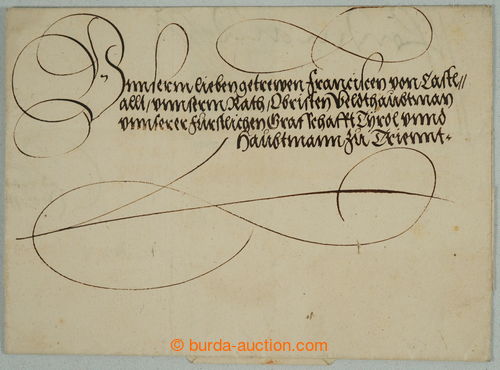 Unnserm lieben getrewen Franciscen von Castl//
allt, unnserm Rath, Obristen Veldthaubtman
unnserer Fürstlichen Graffschafft Tyrol unnd
Haubtmann zu Triennt.
© burda-auction.com